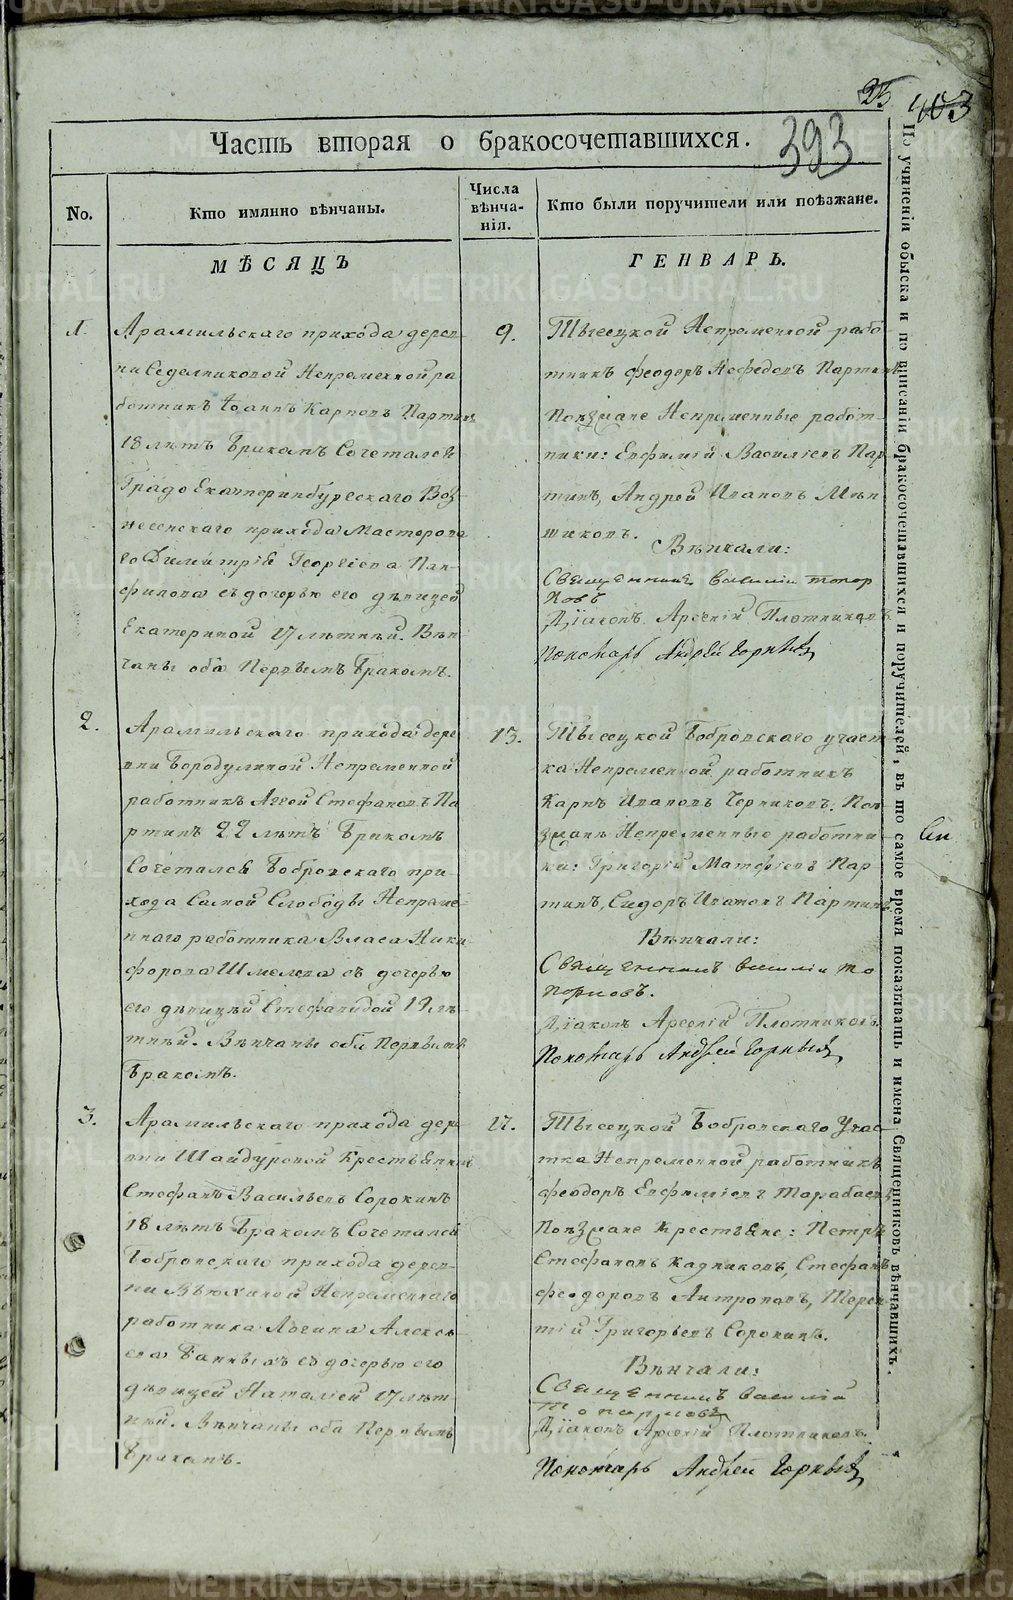 25
403
393
Часть вторая о бракосочетавшихся.
No.
Кто имянно вѣнчаны.
Числа
вѣнча-
нія.
Кто были поручители или поѣзжане.
МѢСЯЦЪ
ГЕНВАРЬ.
1.
Арамильскаго прихода дерев-
ни Седелниковой Непременной ра
ботникъ Іоаннъ Карповъ Партинъ
18 лѣтъ бракомъ Сочетался
Градо Екатеринбургскаго Воз-
несенскаго прихода Мастерова
го Димитрія Георгіева Пан-
филова съ дочерью его дѣвицей
Екатериной 17 лѣтней. Вѣн-
чаны оба Первымъ бракомъ.
9.
Тысецкой Непременной рабо-
тникъ Феодоръ Нефедовъ Партинъ
Поѣзжане Непременные работ-
ники: Евфимій Василіевъ Пар
тинъ, Андрей Ивановъ Мѣн
шиковъ.
Вѣнчали:
Священникъ Василіи Топор
ковъ
Діаконъ Арсеній Плотниковъ
Пономарь Андрей Горныхъ
2.
Арамильскаго прихода дере
вни Бородулиной Непременной
работникъ Аггей Стефановъ Па
ртинъ 22 лѣтъ бракомъ
Сочетался Бобровскаго при-
хода Самой Слободы Непреме-
ннаго работника Власа Ники
форова Шмелева съ дочерью
его дѣвицей Стефанидой 19 лѣ
тней. Вѣнчаны оба Первымъ
бракомъ.
13.
Тысецкой Бобровскаго участ
ка Непременной работникъ
Карпъ Ивановъ Черниковъ. Поѣ
зжанѣ Непременные работни
ки: Григорій Матфіевъ Пар
тинъ, Сидоръ Ивановъ Партинъ
Вѣнчали:
Священникъ Василіи То
порковъ.
Діаконъ Арсеній Плотниковъ
Пономарь Андрей Горныхъ
3.
Арамильскаго прихода дере
вни Шайдуровой Крестьянинъ
Стефанъ Васильевъ Сорокинъ
18 лѣтъ бракомъ Сочетался
Бобровскаго прихода дерев-
ни Вьюхиной Непременнаго
работника Логина Алексѣ-
ева Банныхъ съ дочерью его
дѣвицей Наталіей 17 лѣт-
ней. Вѣнчаны оба Первымъ
бракомъ.
17.
Тысецкой Бобровскаго Учас-
тка Непременной работникъ
Феодоръ Евфиміевъ Тарабаевъ
Поѣзжане Крестьяне: Петръ
Стефановъ Кадниковъ, Стефанъ
Феодоровъ Антроповъ, Терен
тій Григорьевъ Сорокинъ.
Вѣнчали:
Священникъ Василій
Топорковъ
Діаконъ Арсеній Плотниковъ.
Пономарь Андрей Горныхъ
По учиненіи обыска и по вписаніи бракосочетавшихся и поручителей, въ то самое время показывать и имена Священниковъ вѣнчавшихъ.
METRIKI.GASU-URAL.RU